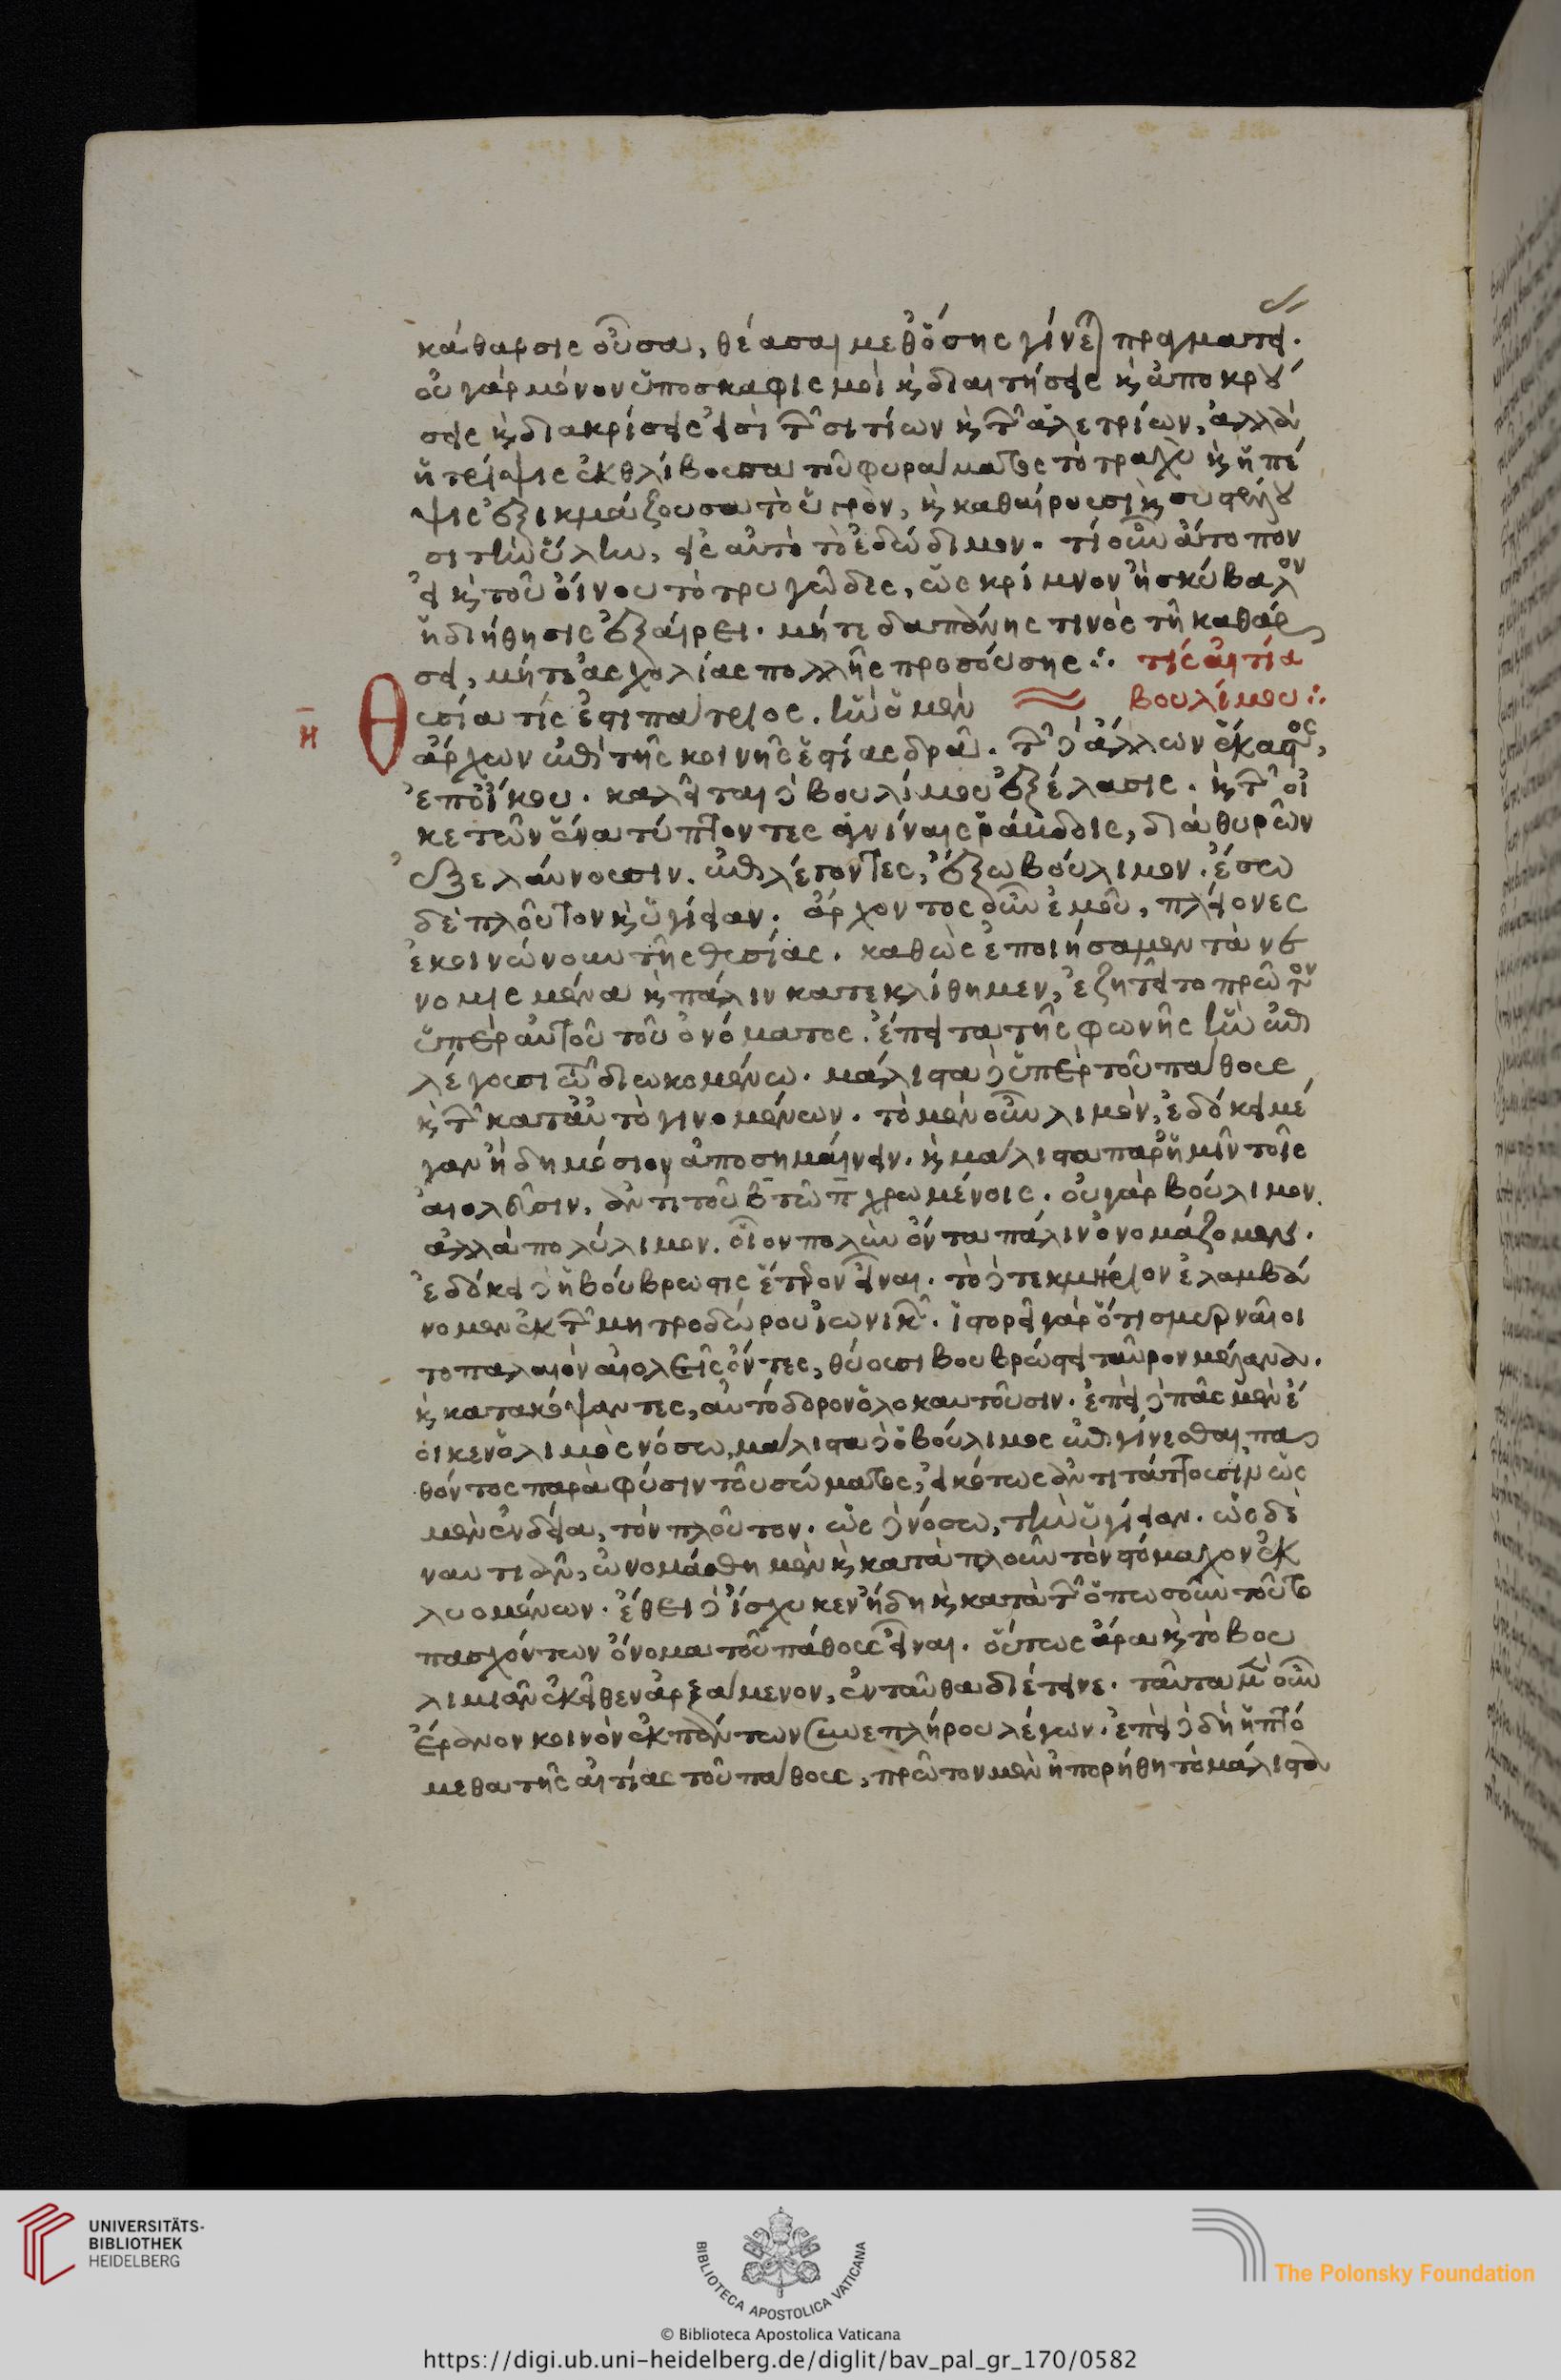 κάθαρσις οὖσα, θέασαι μεθ' ὅσης γίνεται πραγματεί
οὐ γὰρ μόνον ὑποσκαφισμοὶ καὶ διαιτήσεις καὶ ἀποκρού
σεις καὶ διακρίσεις εἰσὶ τῶν σιτίων καὶ τῶν ἀλετρίων, ἀλλὰ
ἡ τρίψις ἐκθλίβουσα τοῦ φυράματος τὸ τραχὺ καὶ ἡ πέ
ψις ἐξικμάζουσα τὸ ὑγρὸν, καὶ καθαίρουσι καὶ συστέλλου
σι τὴν ὕλην, εἰς αὐτὸ τὸ ἐδώδιμον. τί οὖν ἄτοπον
εἰ καὶ τοῦ οἴνου τὸ τρυγῶδες, ὡς κρίμνον ἢ σκύβαλον
ἡ διήθησις ἐξαίρει. μήτε δαπάνης τινὸς τῇ καθάρ
σει, μήτε ἀσχολίας πολλῆς προσούσης ∴ τίς αἰτία
βουλίμου ∴
η Θυσία τίς ἐστι πάτριος. ἣν ὁ μὲν
ἄρχων ἐπὶ τῆς κοινῆς ἑστίας δρᾷ. τῶν δὲ ἄλλων ἕκαστος,
ἐπ' οἴκου. καλεῖται δὲ βουλίμου ἐξέλασις. καὶ τῶν οἰ
κετῶν ἕνα τύπτοντες ἀγνίναις ῥάβδοις, διὰ θυρῶν
ἐξελαύνουσιν. ἐπιλέγοντες, ἔξω βούλιμον. ἔσω
δὲ πλοῦτον καὶ ὑγίειαν. ἄρχοντος οὖν ἐμοῦ, πλείονες
ἐκοινώνουν τῆς θυσίας. καθὼς ἐποιήσαμεν τὰ νε
νομισμένα καὶ πάλιν κατεκλίθημεν, ἐζητεῖτο πρῶτον
ὑπὲρ αὐτοῦ τοῦ ὀνόματος. ἔπειτα τῆς φωνῆς ἣν ἐπι
λέγουσι τῷ διωκομένῳ. μάλιστα δὲ ὑπὲρ τοῦ πάθους
καὶ τῶν κατ' αὐτὸ γινομένων. τὸ μὲν οὖν λιμὸν, ἐδόκει μέ
γαν ἢ δημόσιον ἀποσημαίνειν. καὶ μάλιστα παρ' ἡμῖν τοῖς
αἰολεῦσιν, ἀντὶ τοῦ β τῷ π χρωμένοις. οὐ γὰρ βούλιμον
ἀλλὰ πολύλιμον. οἷον πολὺν ὄντα πάλιν ὀνομάζομεν.
ἐδόκει δὲ ἡ βούβρωστις ἕτερον εἶναι. τὸ δὲ τεκμήριον ἐλαμβά
νομεν ἐκ τῶν μητροδώρου ἰωνικῶν. ἱστορεῖ γὰρ ὅτι σμυρναῖοι
τοπαλαιὸν αἰολεῖς ὄντες, θύουσι βουβρώστει ταῦρον μέλανα.
καὶ κατακόψαντες, αὐτόδορον ὁλοκαυτοῦσιν. ἐπεὶ δὲ πᾶς μὲν ἔ
οικεν ὁ λιμὸς νόσῳ, μάλιστα δὲ ὁ βούλιμος ἐπιγίνεσθαι πα
θόντος παρὰ φύσιν τοῦ σώματος, εἰκότως ἀντιτάττουσιν ὡς
μὲν ἐνδείᾳ, τὸν πλοῦτον. ὡς δὲ νόσῳ, τὴν ὑγίειαν. ὡς δὲ
ναυτιᾶν, ὠνομάσθη μὲν καὶ κατὰ πλοῦν τὸν στόμαχον ἐκ
λυομένων. ἔθει δ' ἴσχυκεν ἤδη καὶ κατὰ τῶν ὁπωσοῦν τοῦτο
πασχόντων ὄνομα τοῦ πάθους εἶναι. οὕτως ἄρα καὶ τὸ βου
λιμιᾶν ἐκεῖθεν ἀρξάμενον, ἐνταῦθα διέτεινε. ταῦτα μὲν οὖν
ἔρανον κοινὸν ἐκ πάντων συνεπλήρου λέγων. ἐπεὶ δὲ δὴ ἡπτό
μεθα τῆς αἰτίας τοῦ πάθους, πρῶτον μὲν ἠπορήθη τὸ μάλιστα
UNIVERSITÄTS-
BIBLIOTHEK
HEIDELBERG
BIBLIOTECA APOSTOLICA VATICANA
The Polonsky Foundation
© Biblioteca Apostolica Vaticana
https://digi.ub.uni-heidelberg.de/diglit/bav_pal_gr_170/0582